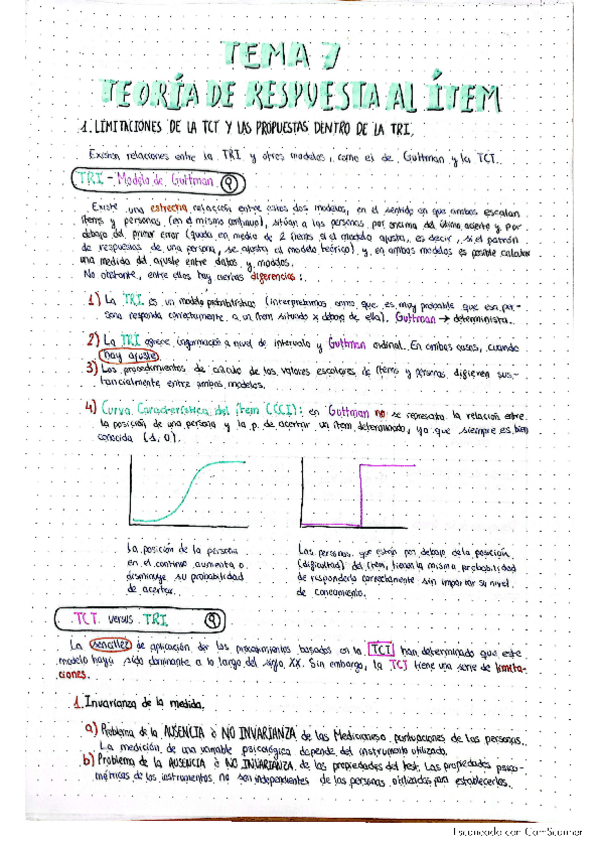 TEMA 7
TEORÍA DE RESPUESTA AL ÍTEM
1. LIMITACIONES DE LA TCT Y LAS PROPUESTAS DENTRO DE LA TRI.
Existen relaciones entre la TRI y otros modelos, como el de Guttman y la TCT.
TRI - Modelo de Guttman
Existe una estrecha relación entre estos dos modelos, en el sentido en que ambos escalan
ítems y personas (en el mismo continuo), sitúan a las personas por encima del último acierto y por
debajo del primer error (queda en medio de 2 ítems si el modelo ajusta, es decir, si el patrón
de respuestas de una persona, se ajusta al modelo teórico) y en ambos modelos es posible calcular
una medida del ajuste entre datos y modelos.
No obstante, entre ellos hay ciertas diferencias:
1) La TRI es un modelo probabilístico (interpretamos como que es muy probable que esa per-
sona responda correctamente a un ítem situado x debajo de ella). Guttman → determinista.
2) La TRI ofrece información a nivel de intervalo y Guttman ordinal. En ambos casos, cuando
hay ajuste.
3) Los procedimientos de cálculo de los valores escalares de ítems y personas, difieren sus-
tancialmente entre ambos modelos.
4) Curva Característica del ítem (CCI): en Guttman no se representa la relación entre
la posición de una persona y la p. de acertar un ítem determinado, ya que siempre es bien
conocida (1, 0).
La posición de la persona
en el continuo aumenta o
disminuye su probabilidad
de acertar.
Las personas que están por debajo de la posición
(dificultad) del ítem, tienen la misma probabilidad
de responderla correctamente sin importar su nivel
de conocimiento.
TCT versus TRI
La sencillez de aplicación de los procedimientos basados en la TCT han determinado que este
modelo haya sido dominante a lo largo del siglo XX. Sin embargo, la TCT tiene una serie de limita-
ciones.
1. Invarianza de la medida.
a) Problema de la AUSENCIA o NO INVARIANZA de las Mediciones o puntuaciones de las personas.
La medición de una variable psicológica depende del instrumento utilizado.
b) Problema de la AUSENCIA o NO INVARIANZA de las propiedades del test. Las propiedades psico-
métricas de los instrumentos no son independientes de las personas utilizadas para establecerlas.
Escaneado con CamScanner